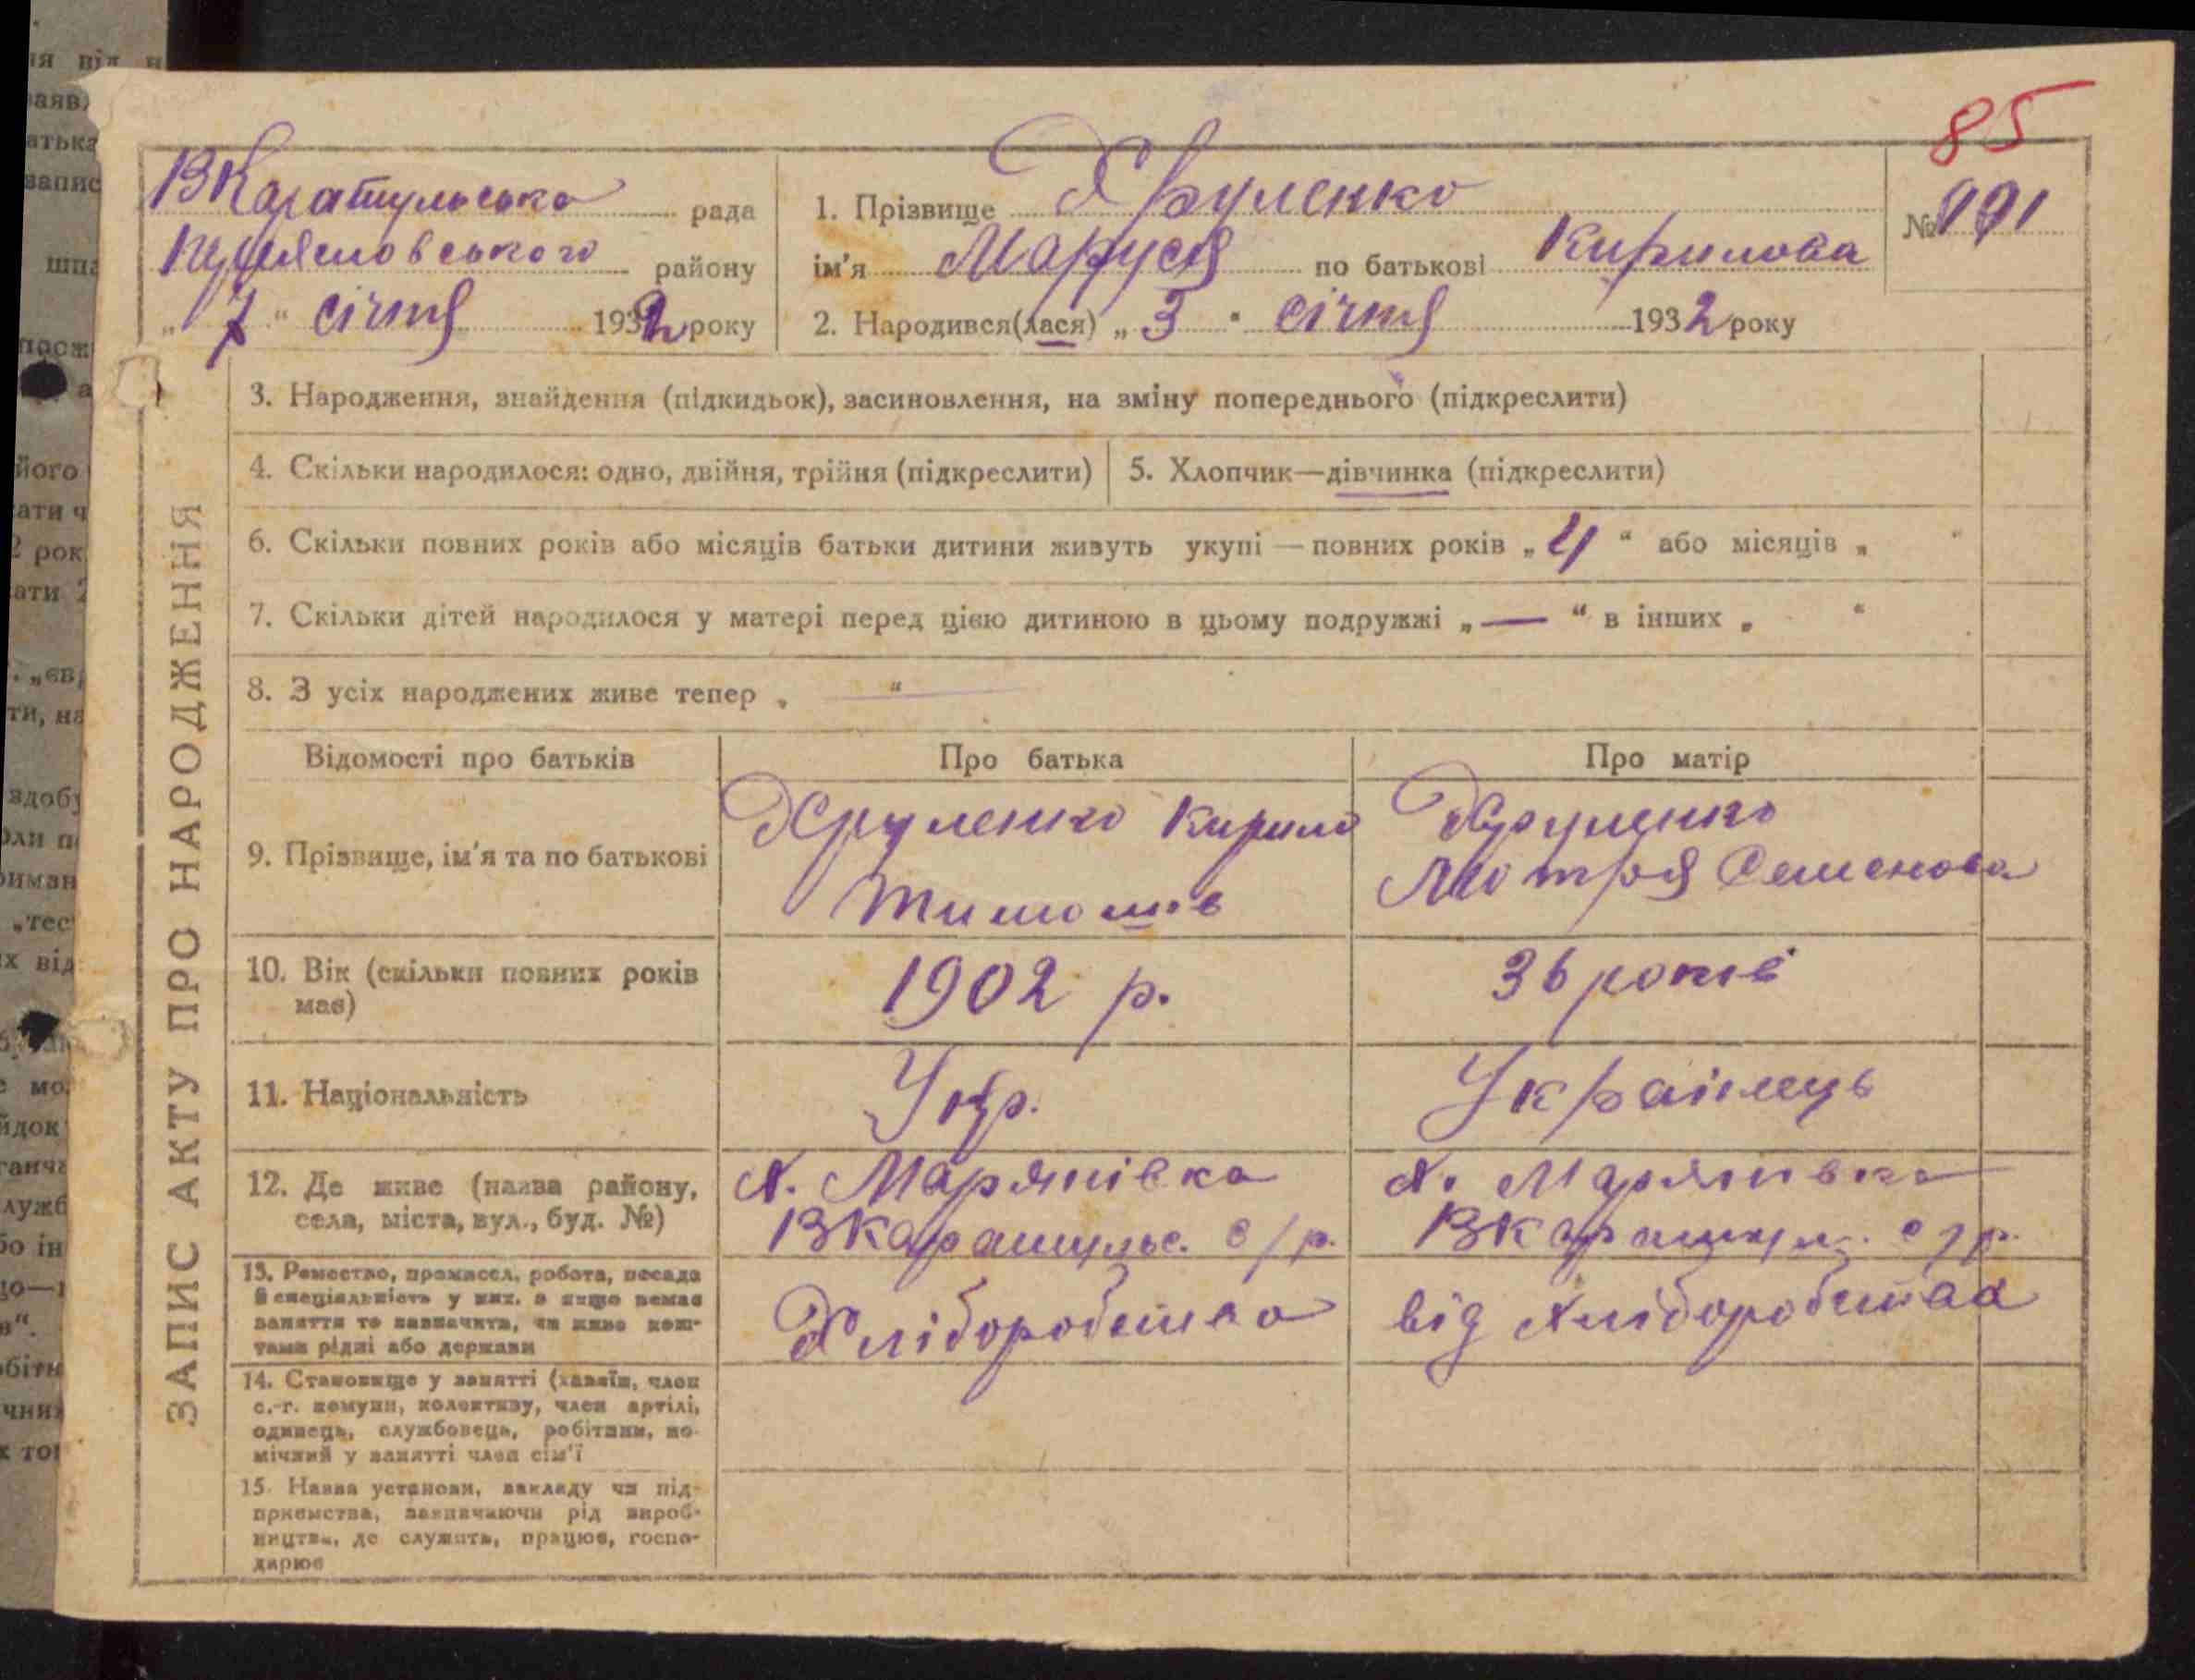 85
ВКаратульська рада
району
„ 7 “ січня 1932 року
1. Прізвище Хруленко
ім'я Маруся по батькові Кирилова
2. Народився(лася) „ 3 “ січня 1932 року
№
ЗАПИС АКТУ ПРО НАРОДЖЕННЯ
3. Народження, знайдення (підкидьок), засиновлення, на зміну попереднього (підкреслити)
4. Скільки народилося: одно, двійня, трійня (підкреслити)
5. Хлопчик—дівчинка (підкреслити)
6. Скільки повних років або місяців батьки дитини живуть укупі — повних років „ 4 “ або місяців „ “
7. Скільки дітей народилося у матері перед цією дитиною в цьому подружжі „ — “ в інших „ “
8. З усіх народжених живе тепер „ — “
Відомості про батьків
Про батька
Про матір
9. Прізвище, ім'я та по батькові
Хруленко Кирило
Хруленко
Мотря Семенова
10. Вік (скільки повних років
має)
1902 р.
36 років
11. Національність
Укр.
Українець
12. Де живе (назва району,
села, міста, вул., буд. №)
х. Мар'янівка
ВКаратульс. с/р.
х. Мар'янівка
ВКаратул. с/р.
13. Ремество, промисел, робота, посада
й спеціальність у них, а якщо немає
заняття то зазначити, чи живе кош-
тами рідні або держави
Хліборобство
від хліборобства
14. Становище у занятті (хазяїн, член
с.-г. комуни, колективу, член артілі,
одинець, службовець, робітник, по-
мічний у занятті член сім'ї
15. Назва установи, закладу чи під-
приємства, зазначаючи рід вироб-
ництва, де служить, працює, госпо-
дарює